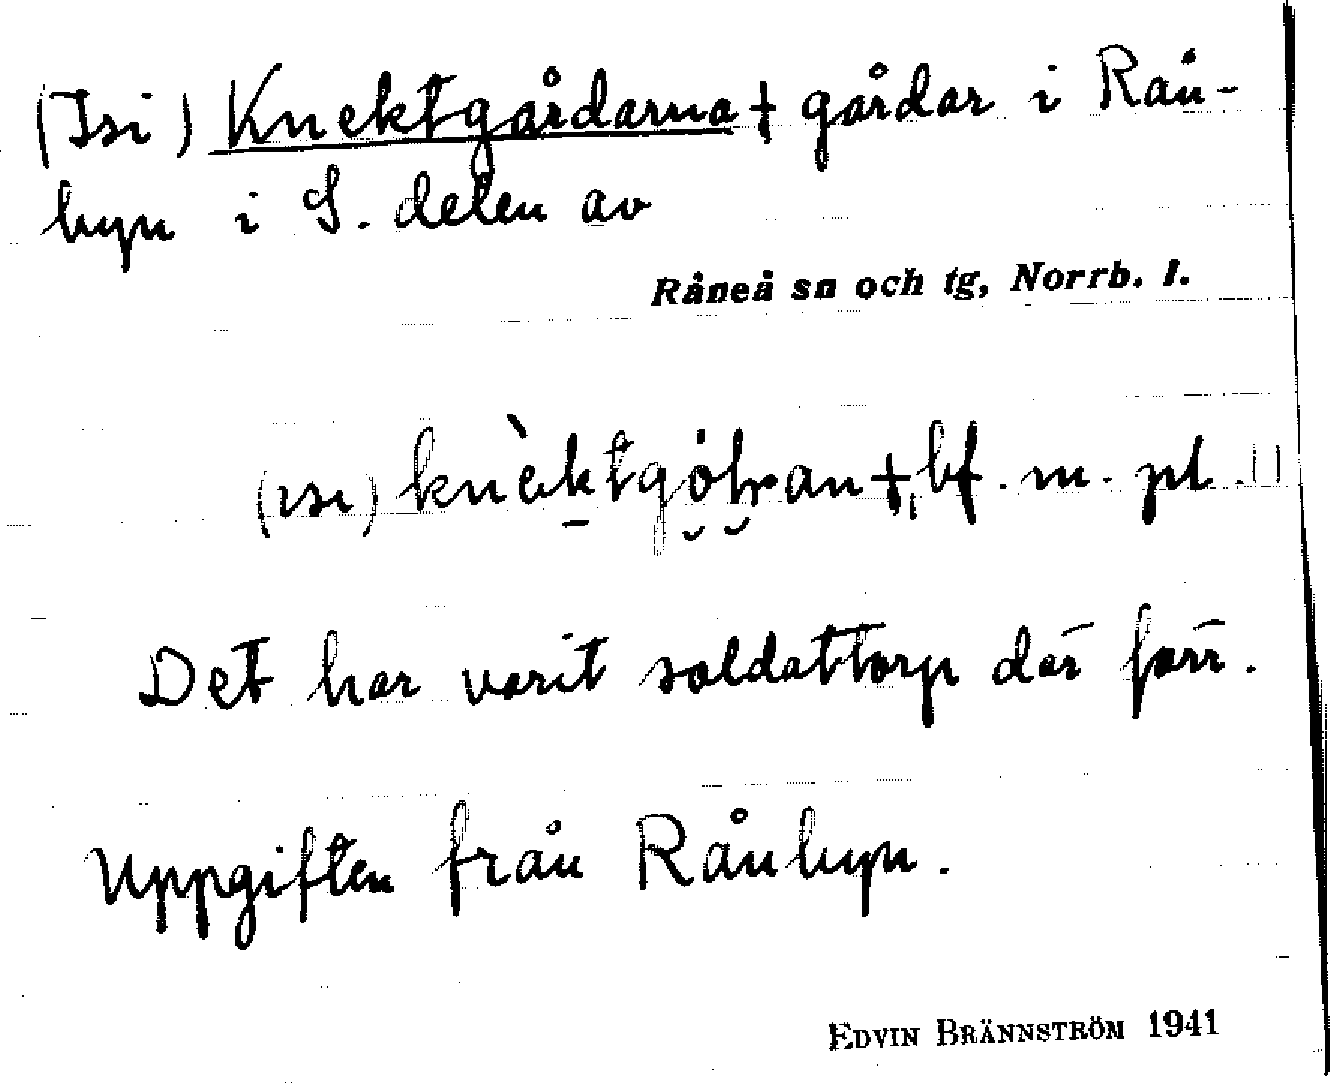 (Isi) Knektgårdarna + gårdar i Rån-
byn i S. delen av
Råneå sn och tg, Norrb. l.
(ısı) +, bf. m. pl.
Det har varit soldattorp där förr.
Uppgiften från Rånbyn.
EDVIN BRÄNNSTRÖM 1941